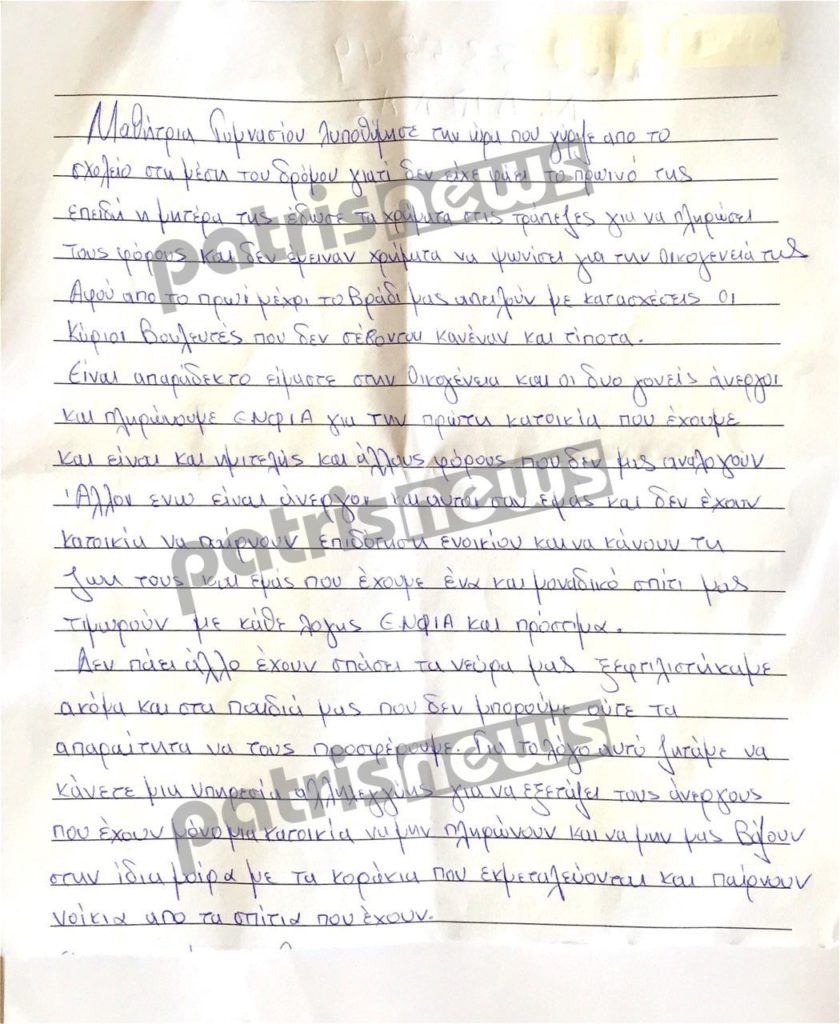 Μαθήτρια Γυμνασίου λυποθήμησε την ώρα που γύριζε απο το
σχολείο στη μέση του δρόμου γιατί δεν είχε φάει το πρωινό της
επειδή η μητέρα της έδωσε τα χρήματα στις τράπεζες για να πληρώσει
τους φόρους και δεν έμειναν χρήματα να ψωνίσει για την Οικογένειά της
Αφού απο το πρωί μέχρι το βράδι μας απειλούν με κατασχέσεις οι
Κύριοι Βουλευτές που δεν σέβονται κανέναν και τίποτα.
Είναι απαράδεκτο είμαστε στην Οικογένεια και οι δυο γονείς άνεργοι
και πληρώνουμε ΕΝΦΙΑ για την πρώτη κατοικία που έχουμε
και είναι και ημιτελής και άλλους φόρους που δεν μας αναλογούν
Άλλοι ενω είναι άνεργοι και αυτοί σαν εμάς και δεν έχουν
κατοικία να παίρνουν επιδότηση ενοικίου και να κάνουν τη
ζωη τους και εμάς που έχουμε ένα και μοναδικό σπίτι μας
τιμωρούν με κάθε λογης ΕΝΦΙΑ και πρόστιμα.
Δεν πάει άλλο έχουν σπάσει τα νεύρα μας ξεφτιλιστήκαμε
ακόμα και στα παιδιά μας που δεν μπορούμε ούτε τα
απαραίτητα να τους προσφέρουμε. Για το λόγο αυτό ζητάμε να
κάνετε μια υπηρεσία αλληλεγγύης για να εξετάζει τους άνεργους
που έχουν μόνο μια κατοικία να μην πληρώνουν και να μην μας βάζουν
στην ίδια μοίρα με τα κοράκια που εκμεταλεύονται και παίρνουν
νοίκια απο τα σπίτια που έχουν.
patrisnews
patrisnews
patrisnews